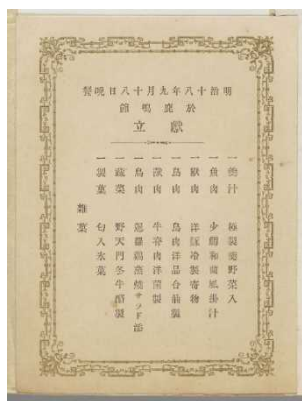 明治十八年九月十八日晩餐
於鹿鳴館
献立
一 羹汁 極製菊野菜入
一 魚肉 少鯛和蘭風掛汁
一 獣肉 洋豚冷製寄物
一 鳥肉 鳥肉洋品合油製
一 獣肉 牛脊肉洋菌製
一 鳥肉 サラド添
一 蔬菜 野天門冬牛酪製
一 製菓 匂入氷菓
雑菓